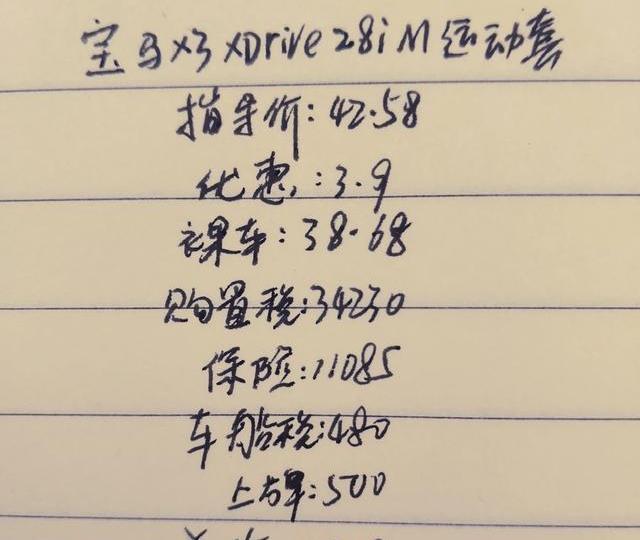 宝马X3 xDrive 28i M运动套
指导价:42.58
优惠:3.9
裸车:38.68
购置税:34230
保险:11085
车船税:480
上牌:500